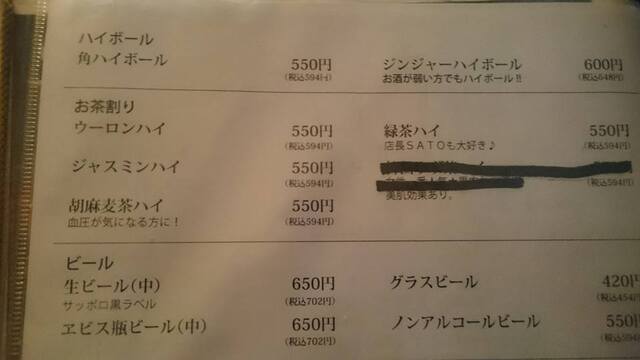 ハイボール
角ハイボール 550円
(税込594円)
ジンジャーハイボール 600円
お酒が弱い方でもハイボール!! (税込648円)
お茶割り
ウーロンハイ 550円
(税込594円)
緑茶ハイ 550円
店長SATOも大好き♪ (税込594円)
ジャスミンハイ 550円
(税込594円)
(税込594円)
美肌効果あり。
胡麻麦茶ハイ 550円
血圧が気になる方に! (税込594円)
ビール
生ビール(中) 650円
サッポロ黒ラベル (税込702円)
グラスビール 420円
(税込454円)
ヱビス瓶ビール(中) 650円
(税込702円)
ノンアルコールビール 550円
(税込594円)